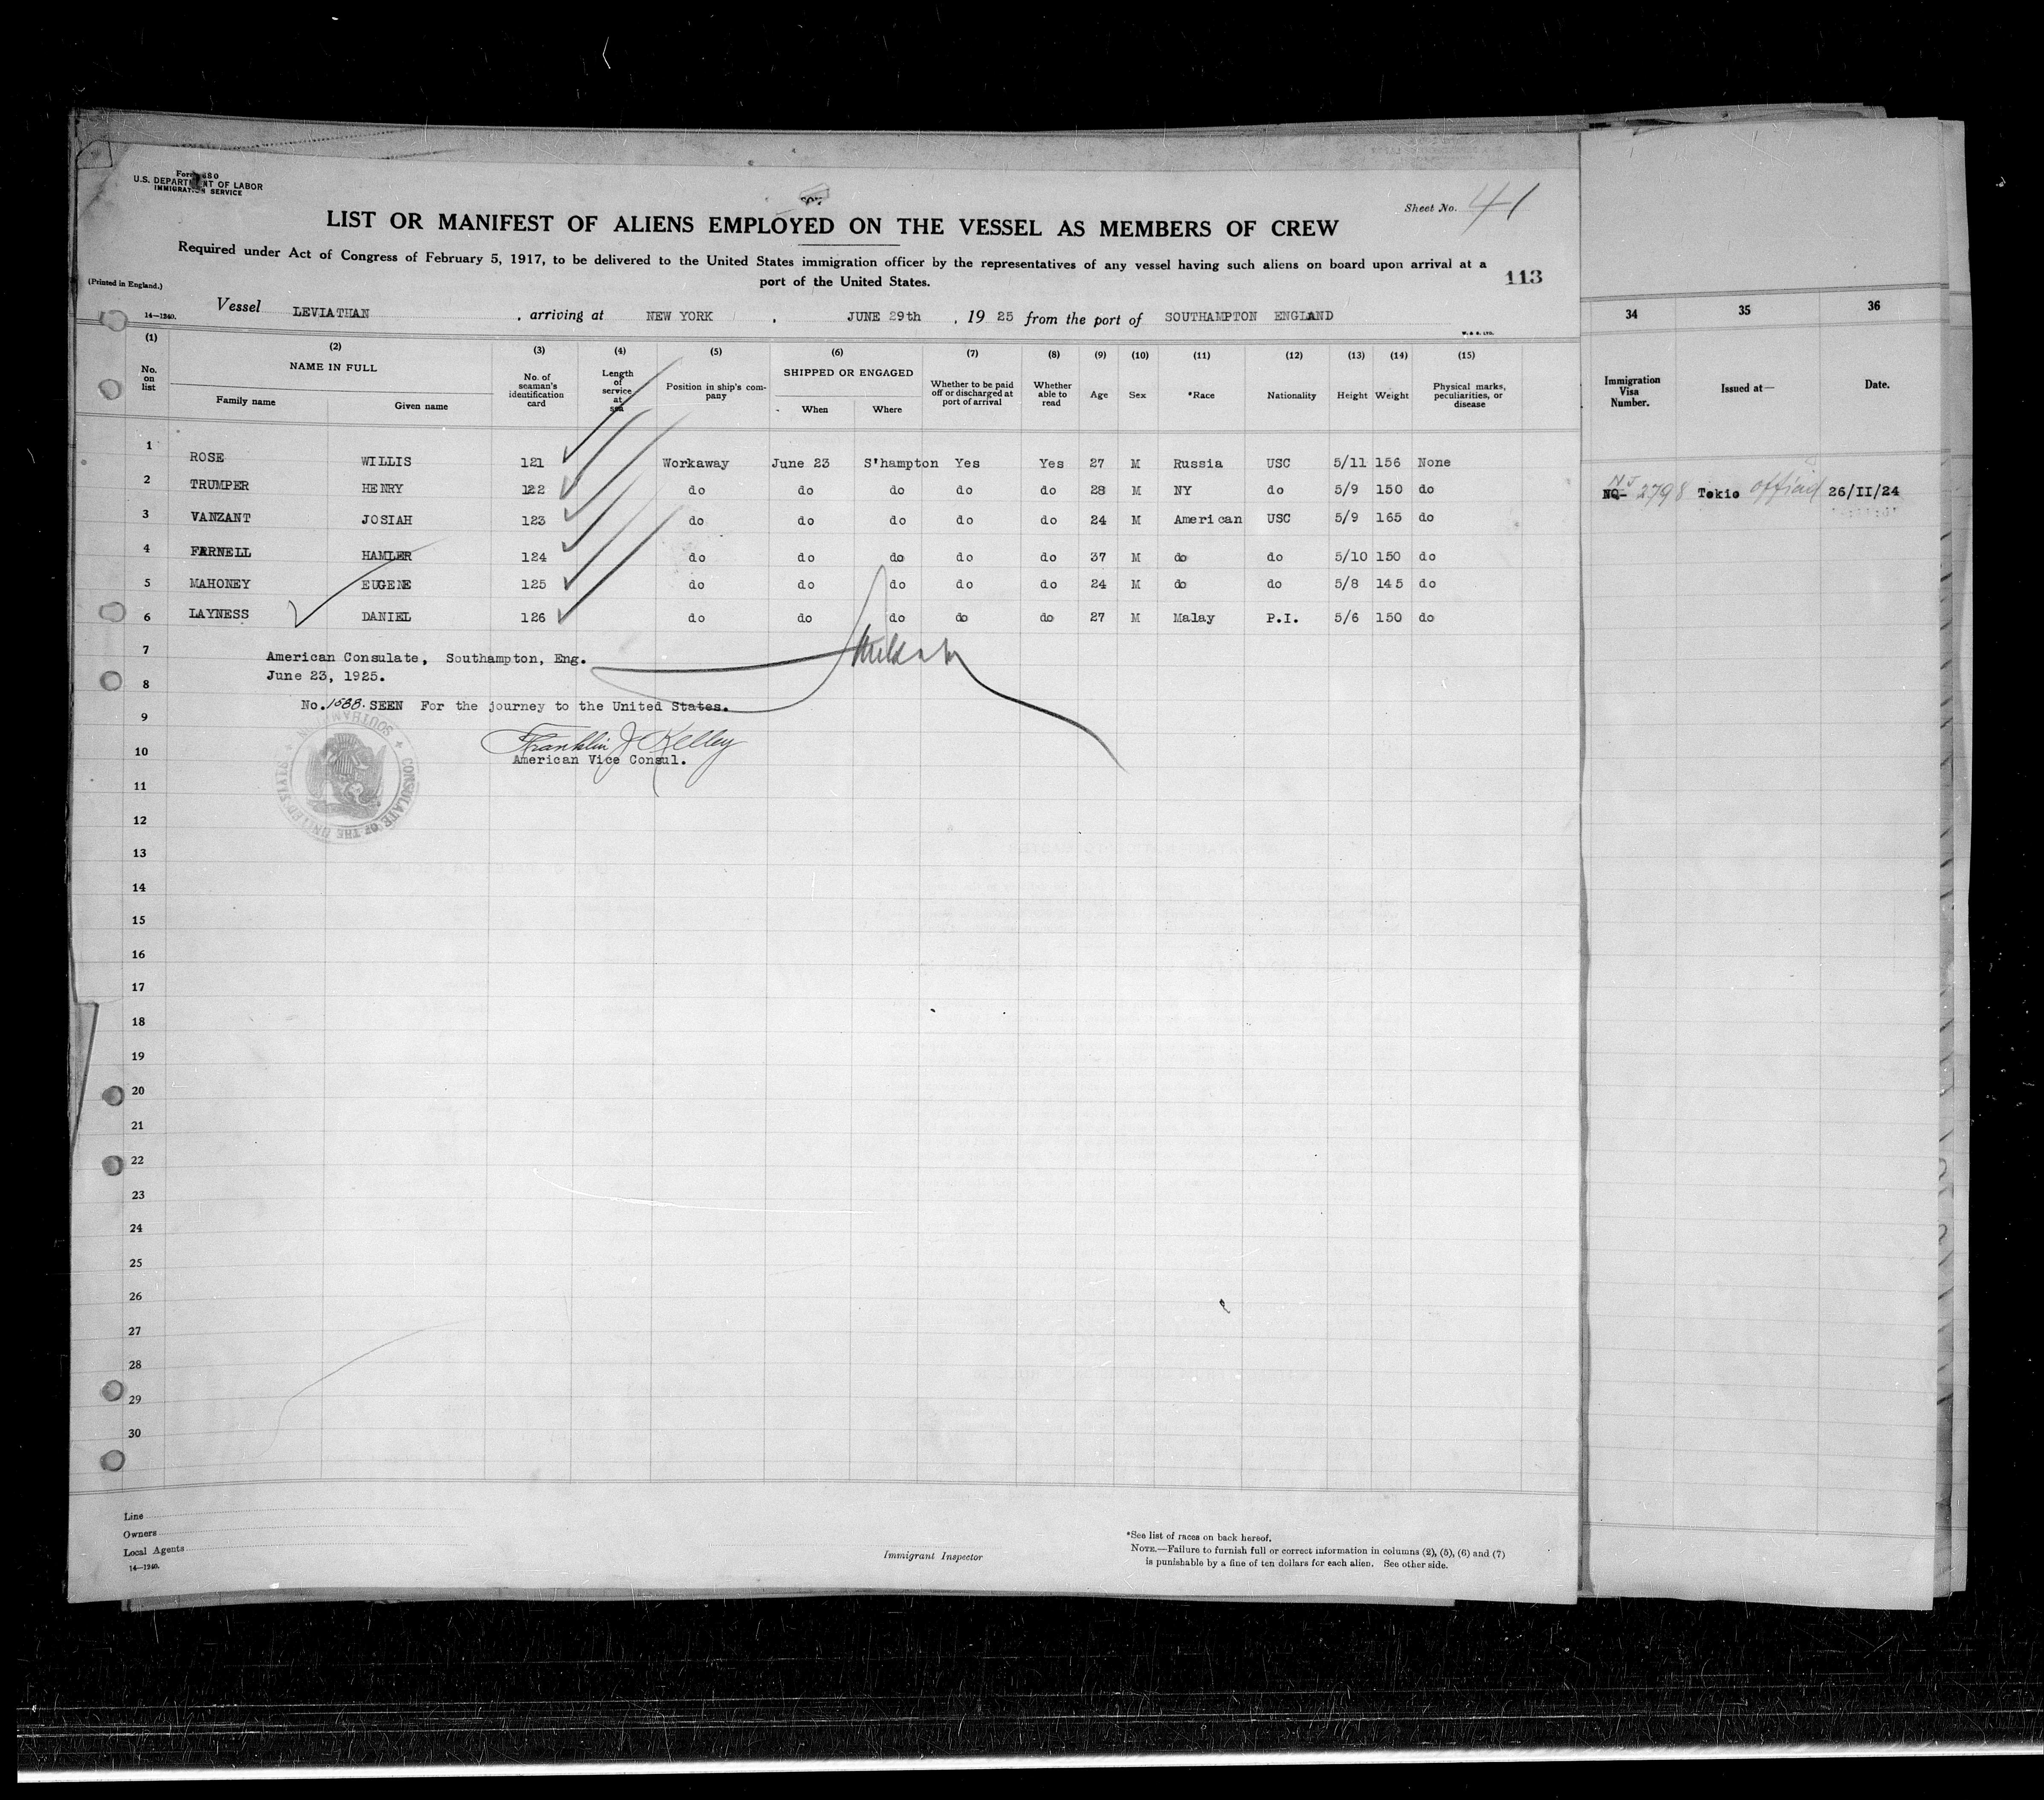 Form 680
U.S. DEPARTMENT OF LABOR
IMMIGRATION SERVICE
Sheet No. 41
LIST OR MANIFEST OF ALIENS EMPLOYED ON THE VESSEL AS MEMBERS OF CREW
Required under Act of Congress of February 5, 1917, to be delivered to the United States immigration officer by the representatives of any vessel having such aliens on board upon arrival at a
port of the United States.
113
(Printed in England.)
14—1240.
Vessel LEVIATHAN , arriving at NEW YORK , JUNE 29th , 19 25 from the port of SOUTHAMPTON ENGLAND
W. & S. LTD.
(1) (2) (3) (4) (5) (6) (7) (8) (9) (10) (11) (12) (13) (14) (15)
No. on list
NAME IN FULL
Family name Given name
No. of seaman's identification card
Length of service at sea
Position in ship's company
SHIPPED OR ENGAGED
When Where
Whether to be paid off or discharged at port of arrival
Whether able to read
Age Sex *Race Nationality Height Weight
Physical marks, peculiarities, or disease
1 ROSE WILLIS 121 Workaway June 23 S'hampton Yes Yes 27 M Russia USC 5/11 156 None
2 TRUMPER HENRY 122 do do do do do 28 M NY do 5/9 150 do
3 VANZANT JOSIAH 123 do do do do do 24 M American USC 5/9 165 do
4 FARNELL HAMLER 124 do do do do do 37 M do do 5/10 150 do
5 MAHONEY EUGENE 125 do do do do do 24 M do do 5/8 145 do
6 LAYNESS DANIEL 126 do do do do do 27 M Malay P.I. 5/6 150 do
7
American Consulate, Southampton, Eng.
June 23, 1925.
8
No. 1588. SEEN For the journey to the United States.
9
Franklin J Kelley
10
American Vice Consul.
CONSULATE OF THE UNITED STATES
SOUTHAMPTON
11
12
13
14
15
16
17
18
19
20
21
22
23
24
25
26
27
28
29
30
Line
Owners
Local Agents
14—1240.
Immigrant Inspector
*See list of races on back hereof.
NOTE.—Failure to furnish full or correct information in columns (2), (5), (6) and (7)
is punishable by a fine of ten dollars for each alien. See other side.
34 35 36
Immigration Visa Number.
Issued at—
Date.
NQ- 2798 Tokio official 26/II/24